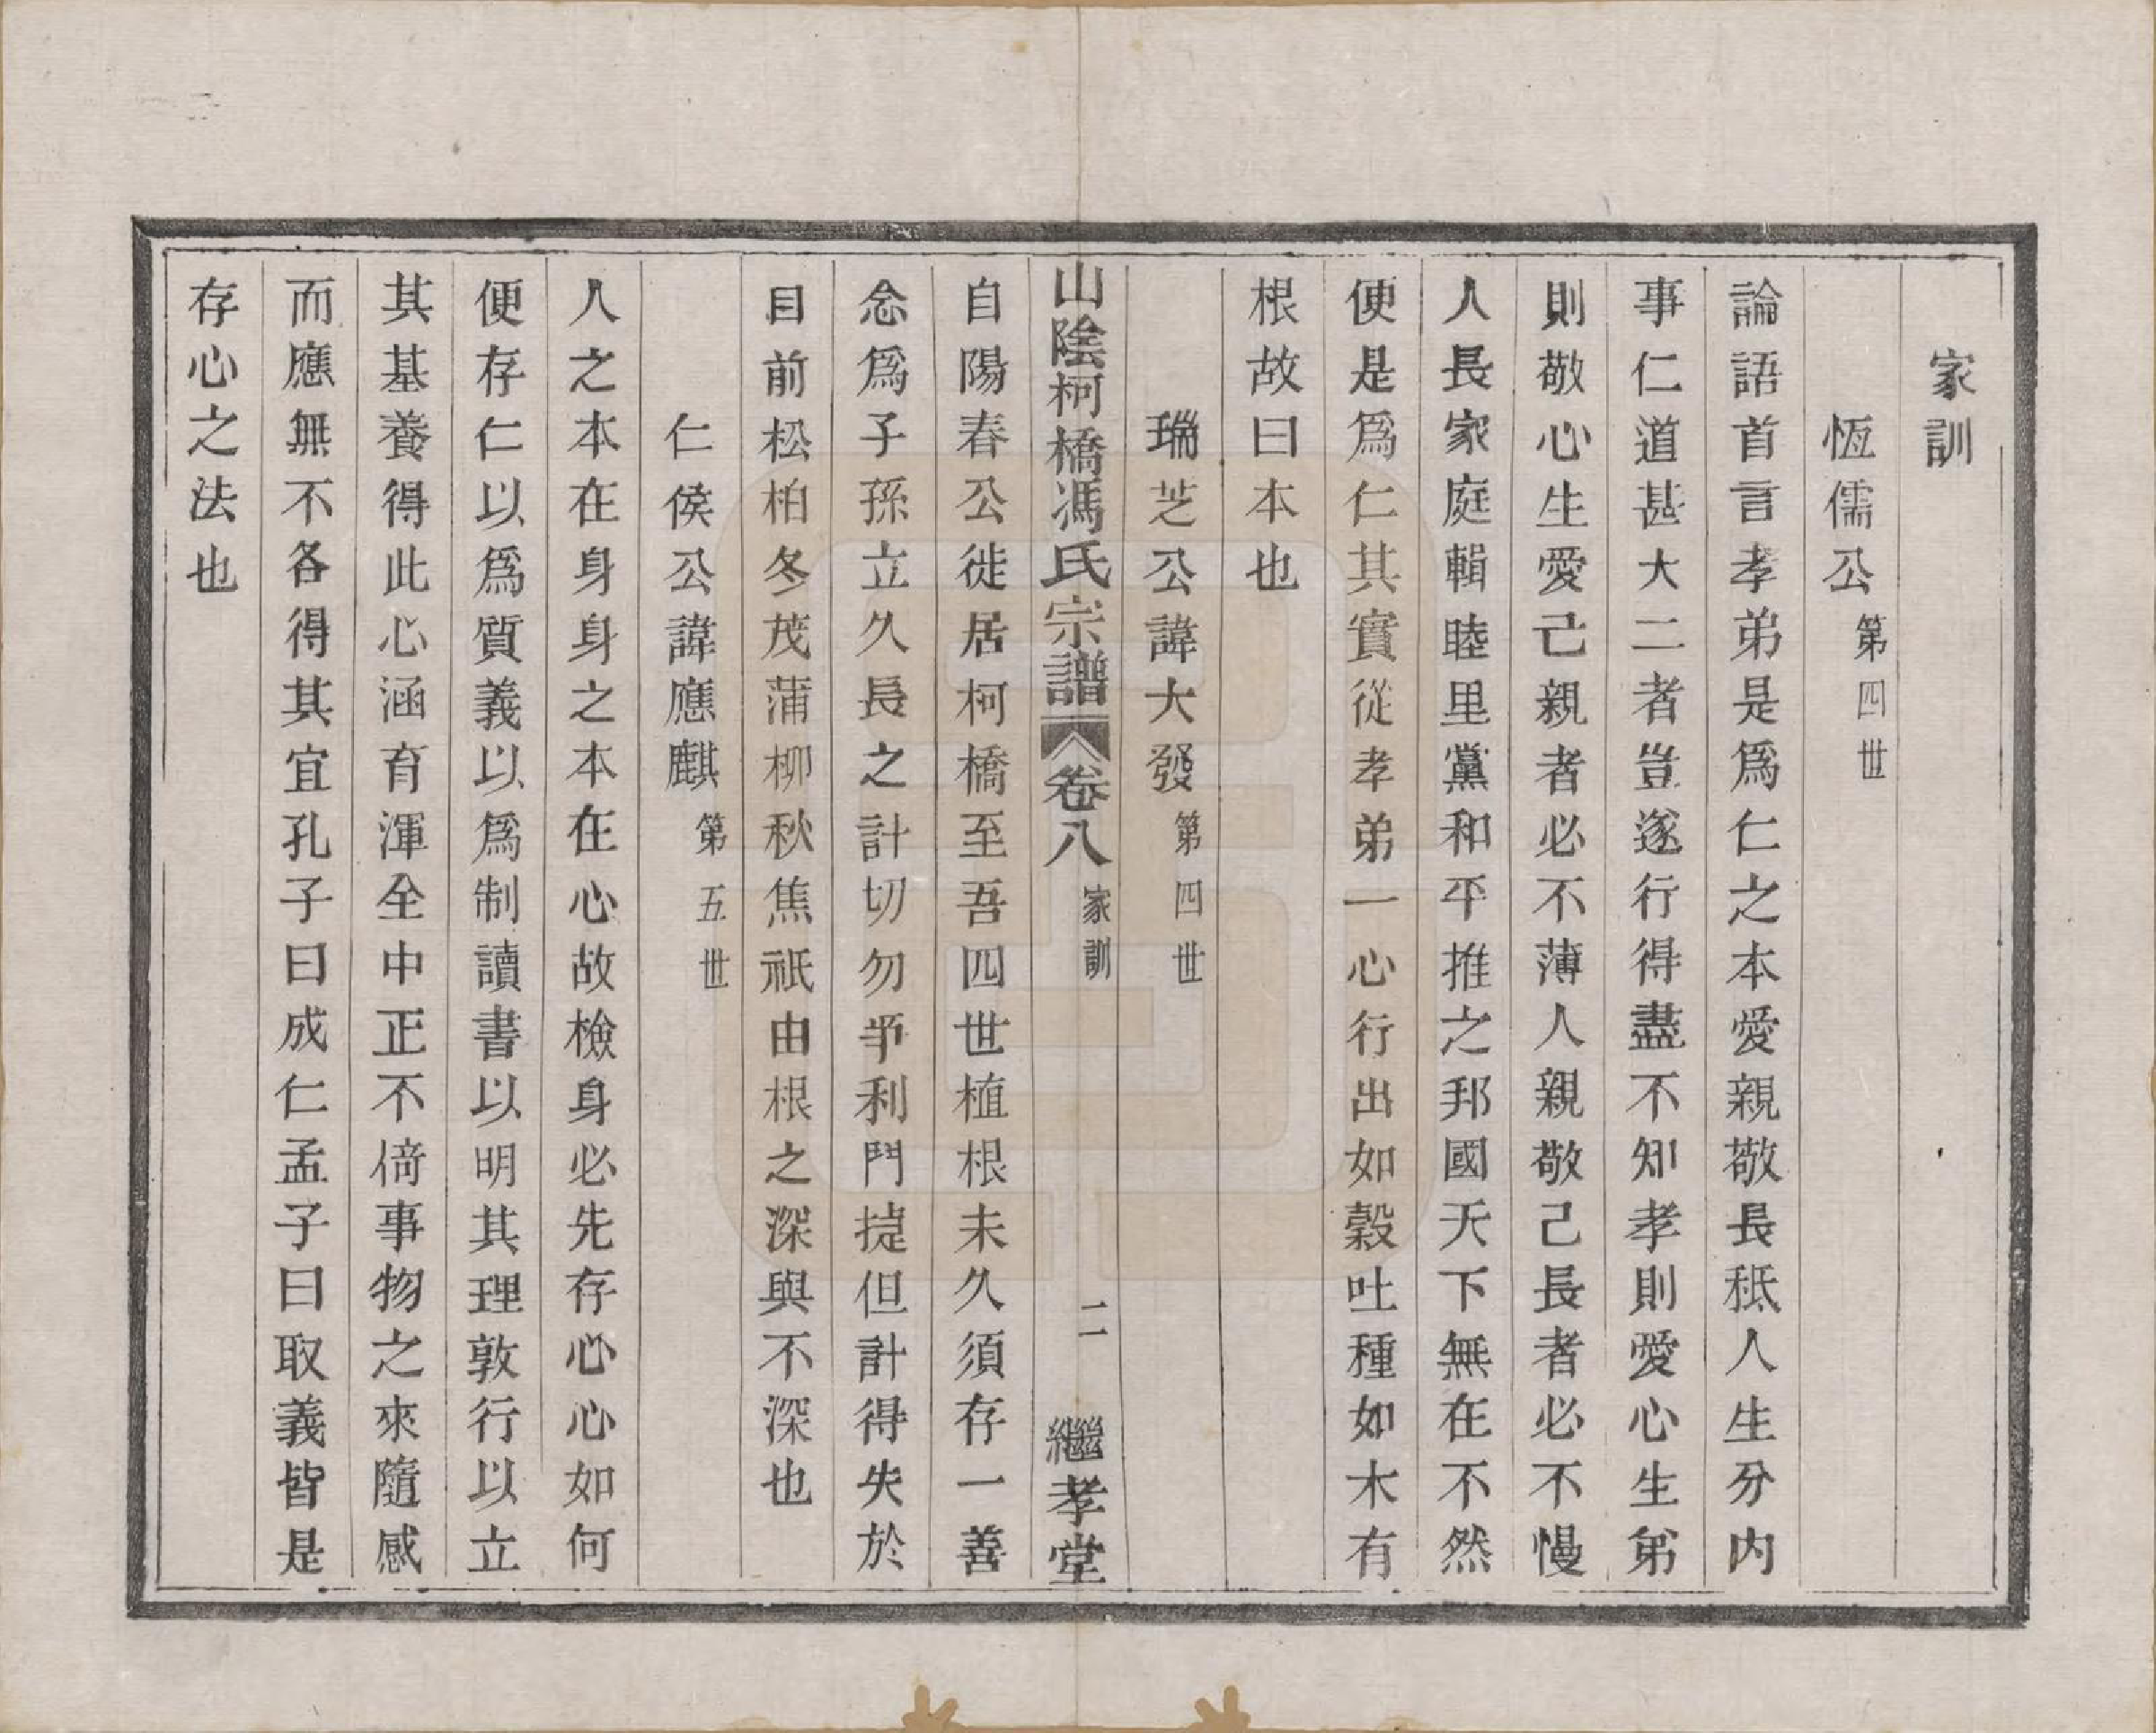 家訓
恆儒公第四世
論語首言孝弟是爲仁之本愛親敬長秪人生分內
事仁道甚大二者豈遂行得盡不知孝則愛心生弟
則敬心生愛己親者必不薄人親敬己長者必不慢
人長家庭輯睦里黨和平推之邦國天下無在不然
便是爲仁其實從孝弟一心行出如穀吐種如木有
根故曰本也
瑞芝公諱大發第四世
山陰柯橋馮氏宗譜 卷八 家訓 二 繼孝堂
自陽春公徙居柯橋至吾四世植根未久須存一善
念爲子孫立久長之計切勿爭利鬥㨗但計得失於
目前松柏冬茂蒲柳秋焦祇由根之深與不深也
仁侯公諱應麒第五世
人之本在身身之本在心故檢身必先存心心如何
便存仁以爲質義以爲制讀書以明其理敦行以立
其基養得此心涵育渾全中正不倚事物之來隨感
而應無不各得其宜孔子曰成仁孟子曰取義皆是
存心之法也